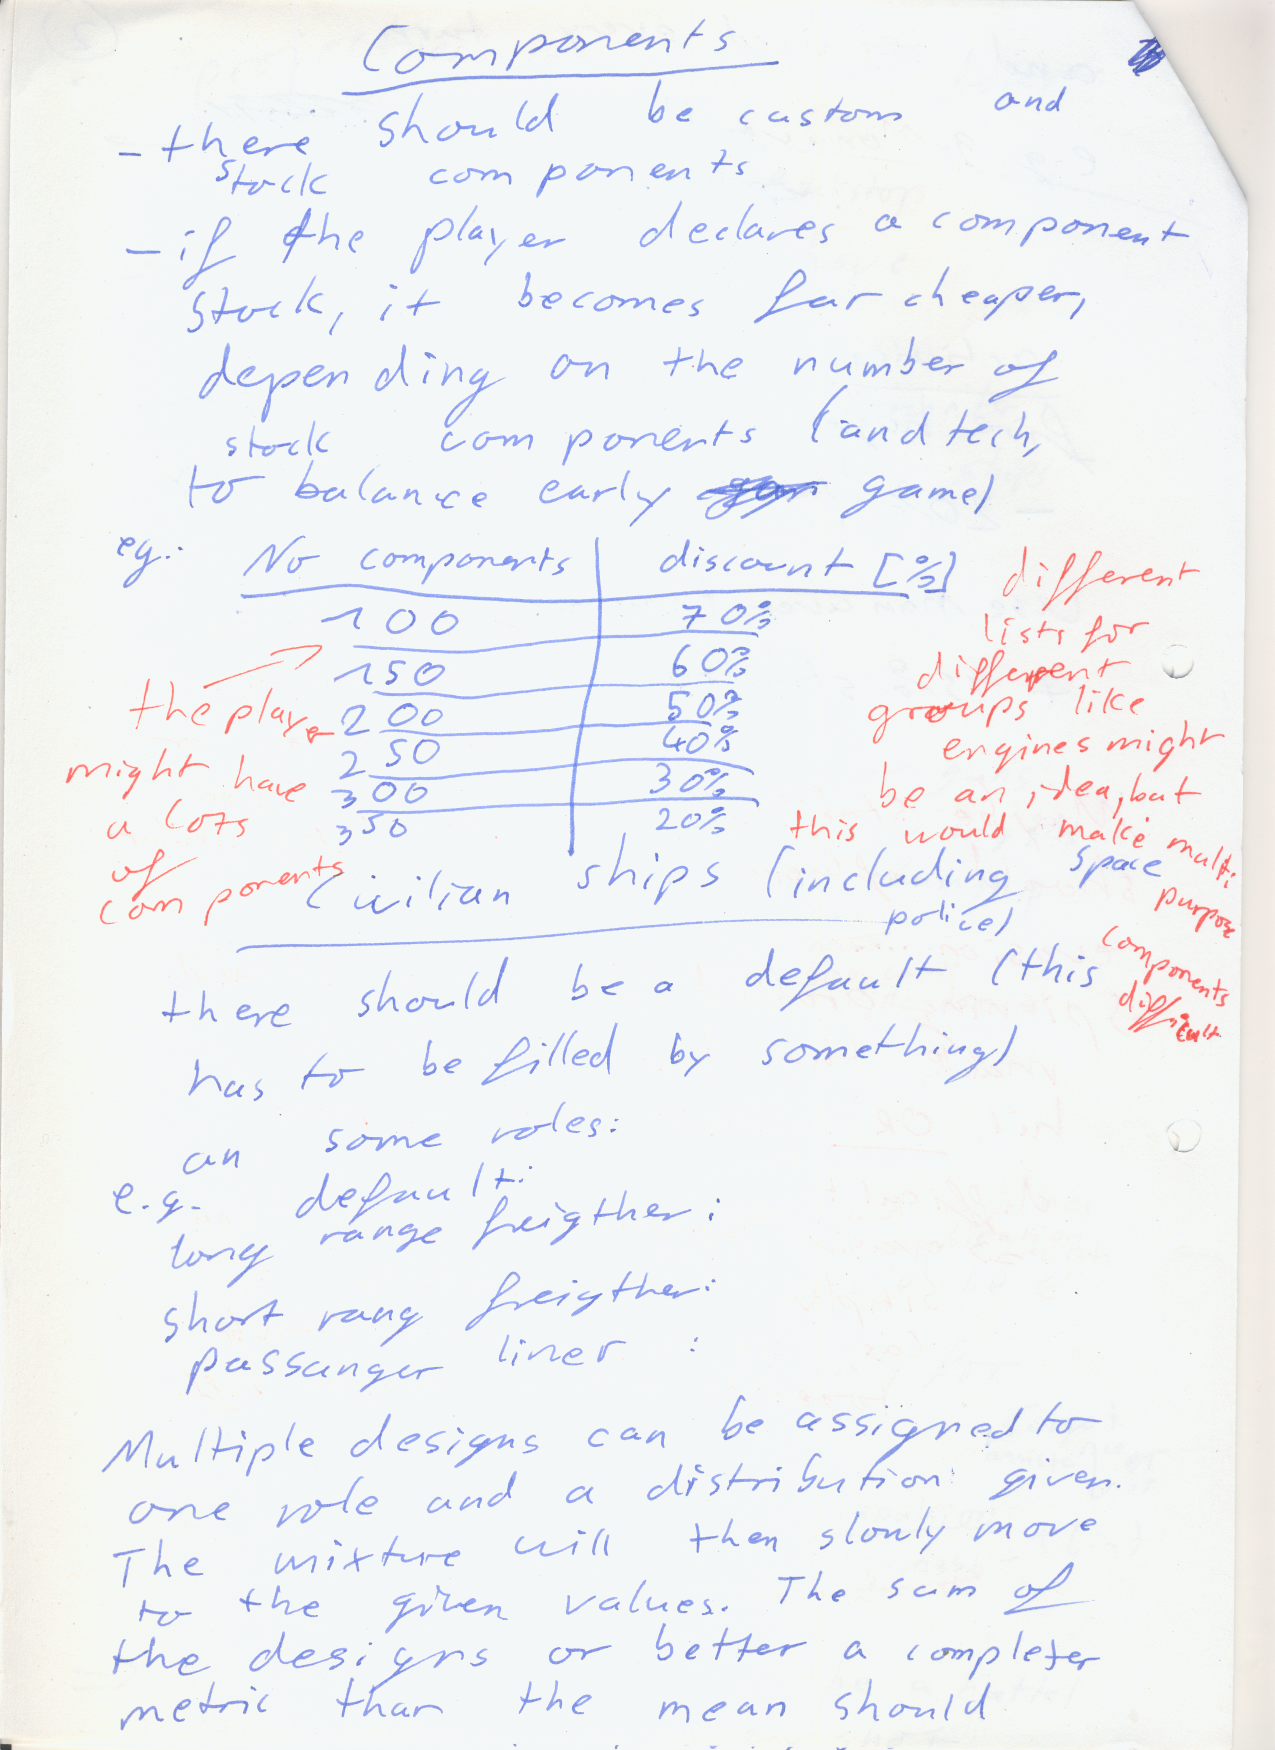 Components
- there should be custom and
stock components
- if the player declares a component
stock, it becomes far cheaper,
depending on the number of
stock components (and tech,
to balance early game)
eg.: No components | discount [%]
100 70%
150 60%
200 50%
250 40%
300 30%
350 20%
the player
might have
a lots
of
components
different
lists for
different
groups like
engines might
be an idea, but
this would make multi
purpose
components
difficult
Civilian ships (including space
police)
there should be a default (this
has to be filled by something)
an some roles:
e.g. default:
long range freigther:
short rang freigther:
passanger liner :
Multiple designs can be assigned to
one role and a distribution given.
The mixture will then slowly move
to the given values. The sum of
the designs or better a complexer
metric than the mean should